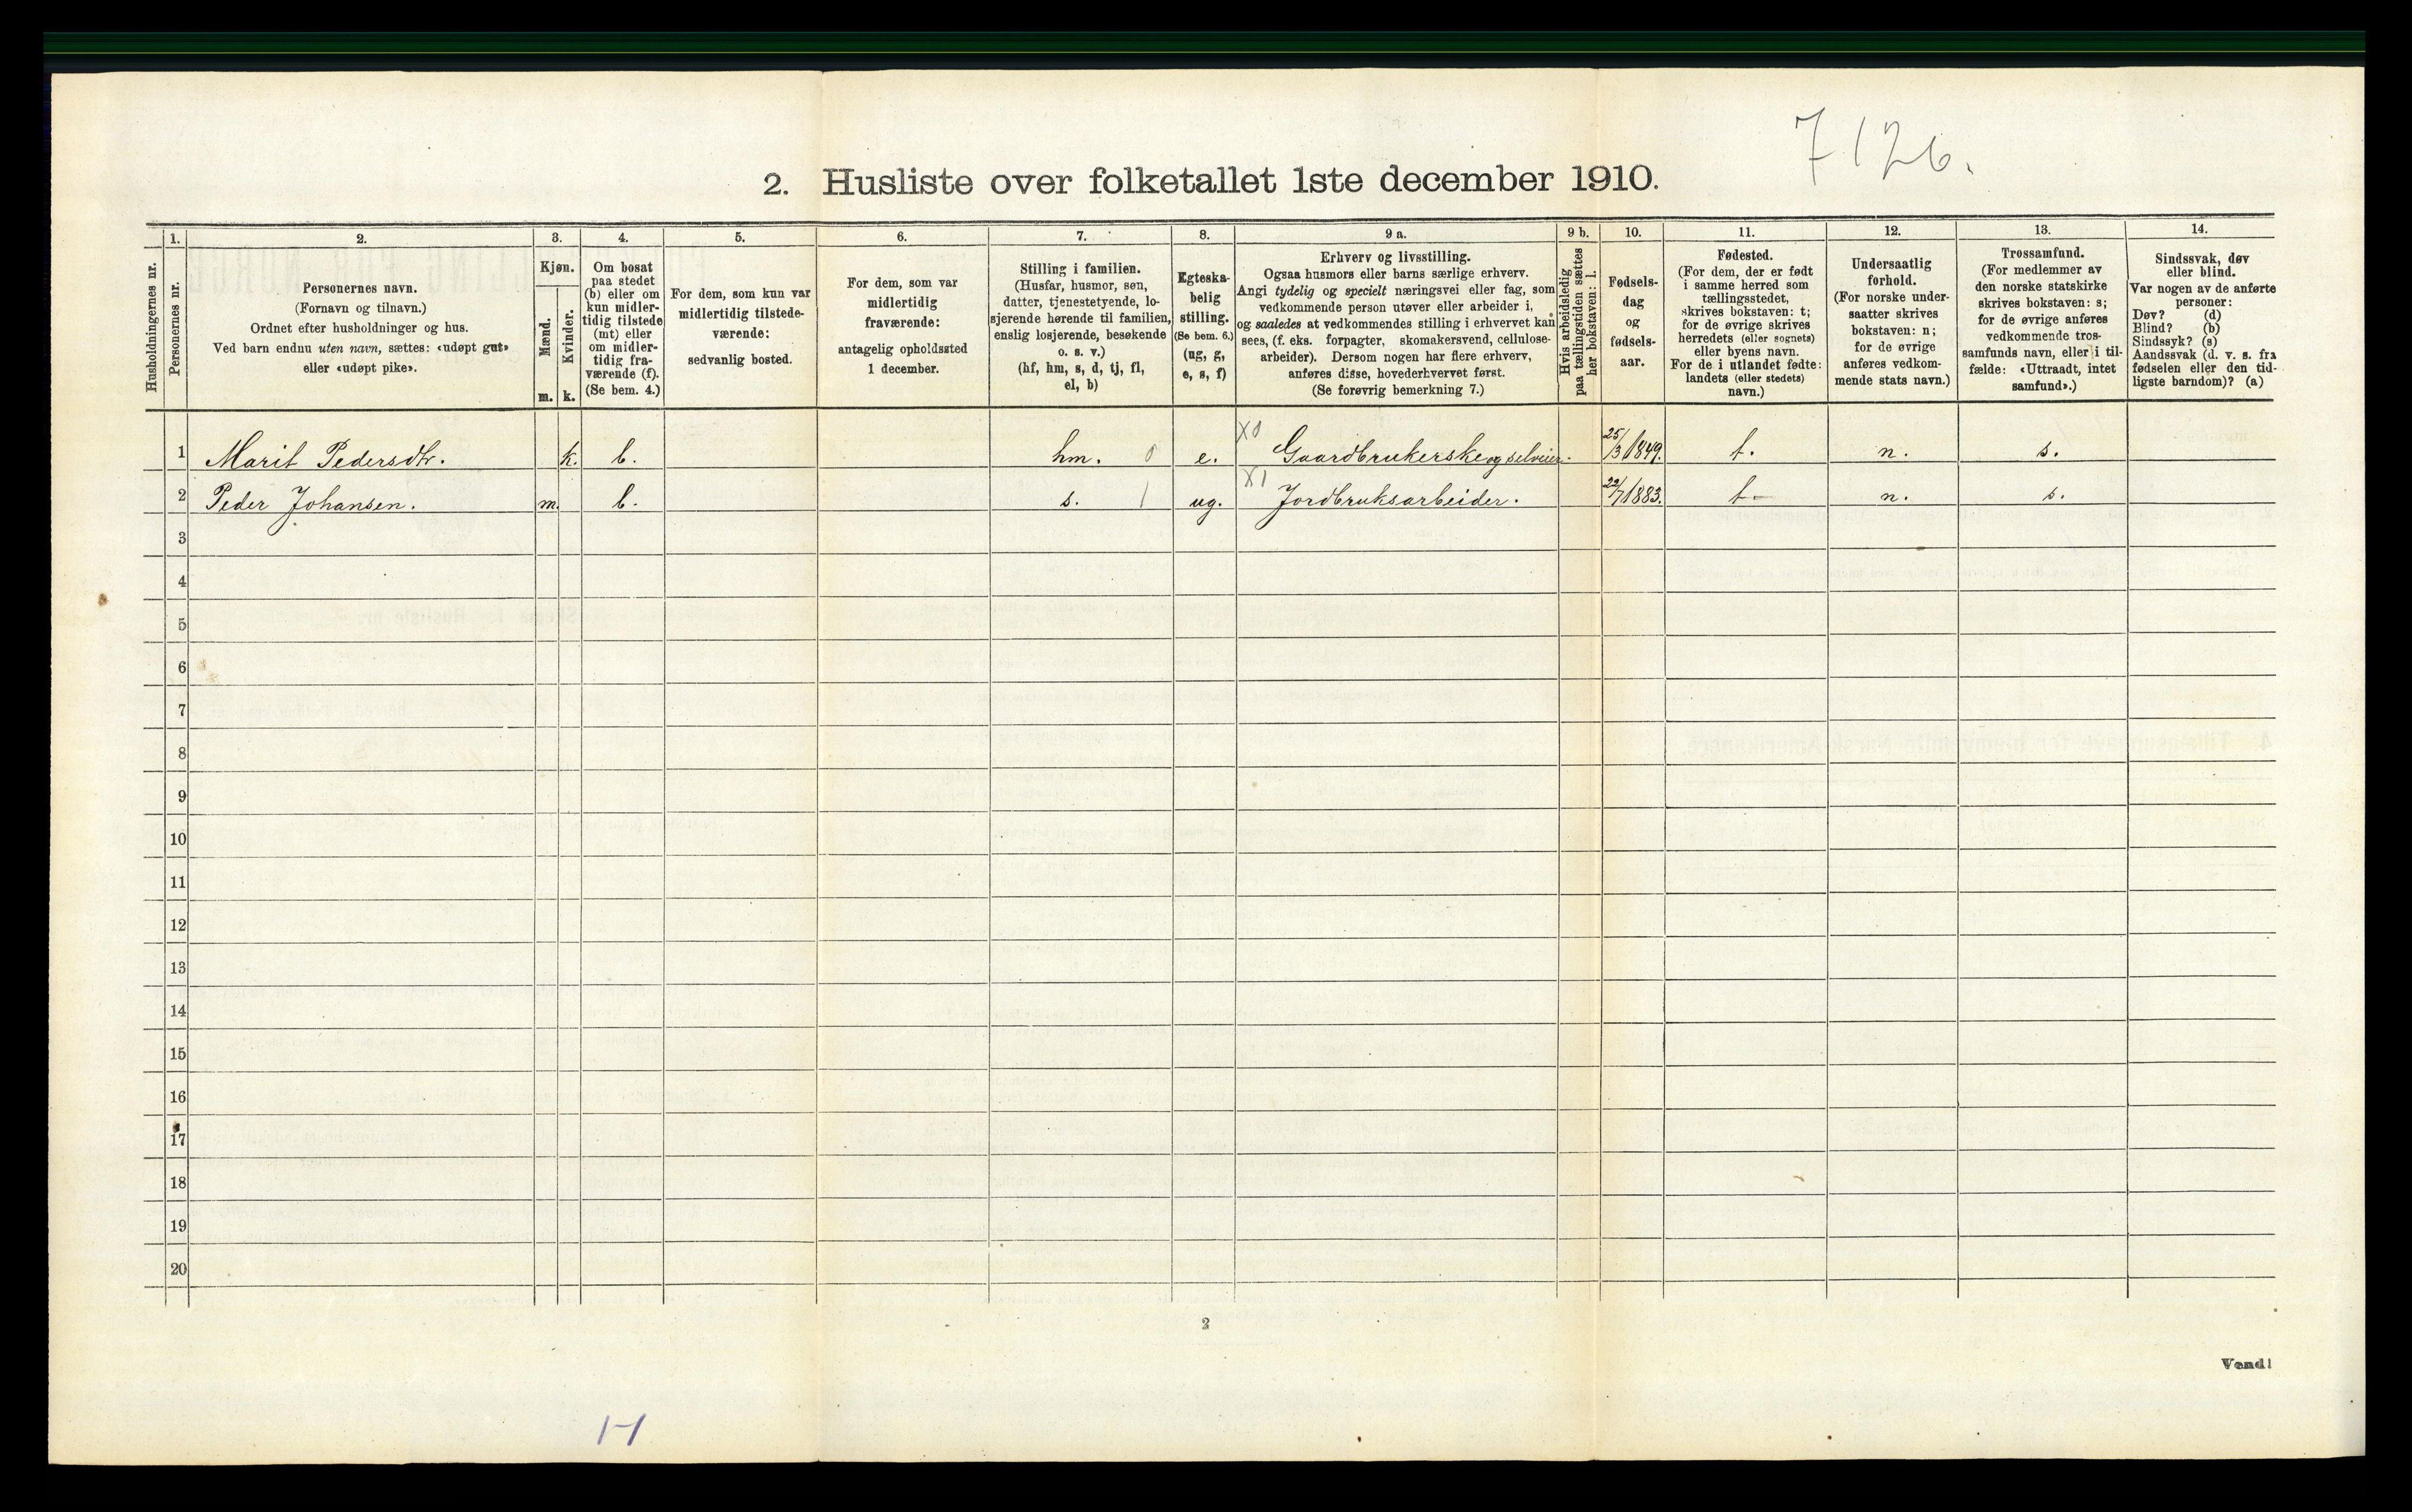 7126.
2. Husliste over folketallet 1ste december 1910.
Husholdningernes nr.
1.
Personernes nr.
2.
Personernes navn.
(Fornavn og tilnavn.)
Ordnet efter husholdninger og hus.
Ved barn endnu uten navn, sættes: «udøpt gut»
eller «udøpt pike».
3.
Kjøn.
Mænd.
m.
Kvinder.
k.
4.
Om bosat
paa stedet
(b) eller om
kun midler-
tidig tilstede
(mt) eller
om midler-
tidig fra-
værende (f).
(Se bem. 4.)
5.
For dem, som kun var
midlertidig tilstede-
værende:
sedvanlig bosted.
6.
For dem, som var
midlertidig
fraværende:
antagelig opholdssted
1 december.
7.
Stilling i familien.
(Husfar, husmor, søn,
datter, tjenestetyende, lo-
sjerende hørende til familien,
enslig losjerende, besøkende
o. s. v.)
(hf, hm, s, d, tj, fl,
el, b)
8.
Egteska-
belig
stilling.
(Se bem. 6.)
(ug, g,
e, s, f)
9 a.
Erhverv og livsstilling.
Ogsaa husmors eller barns særlige erhverv.
Angi tydelig og specielt næringsvei eller fag, som
vedkommende person utøver eller arbeider i,
og saaledes at vedkommendes stilling i erhvervet kan
sees, (f. eks. forpagter, skomakersvend, cellulose-
arbeider). Dersom nogen har flere erhverv,
anføres disse, hovederhvervet først.
(Se forøvrig bemerkning 7.)
9 b.
Hvis arbeidsledig
paa tællingstiden sættes
her bokstaven: l.
10.
Fødsels-
dag
og
fødsels-
aar.
11.
Fødested.
(For dem, der er født
i samme herred som
tællingsstedet,
skrives bokstaven: t;
for de øvrige skrives
herredets (eller sognets)
eller byens navn.
For de i utlandet fødte:
landets (eller stedets)
navn.)
12.
Undersaatlig
forhold.
(For norske under-
saatter skrives
bokstaven: n;
for de øvrige
anføres vedkom-
mende stats navn.)
13.
Trossamfund.
(For medlemmer av
den norske statskirke
skrives bokstaven: s;
for de øvrige anføres
vedkommende tros-
samfunds navn, eller i til-
fælde: «Uttraadt, intet
samfund».)
14.
Sindssvak, døv
eller blind.
Var nogen av de anførte
personer:
Døv? (d)
Blind? (b)
Sindssyk? (s)
Aandssvak (d. v. s. fra
fødselen eller den tid-
ligste barndom)? (a)
1 Marit Pedersdtr. k. b. hm. 0 e. X0 Gaardbrukerske og selveier. 25/3 1849. t. n. s.
2 Peder Johansen. m. b. s. 1 ug. X1 Jordbruksarbeider. 22/7 1883. t. n. s.
3
4
5
6
7
8
9
10
11
12
13
14
15
16
17
18
19
20
2
Vend!